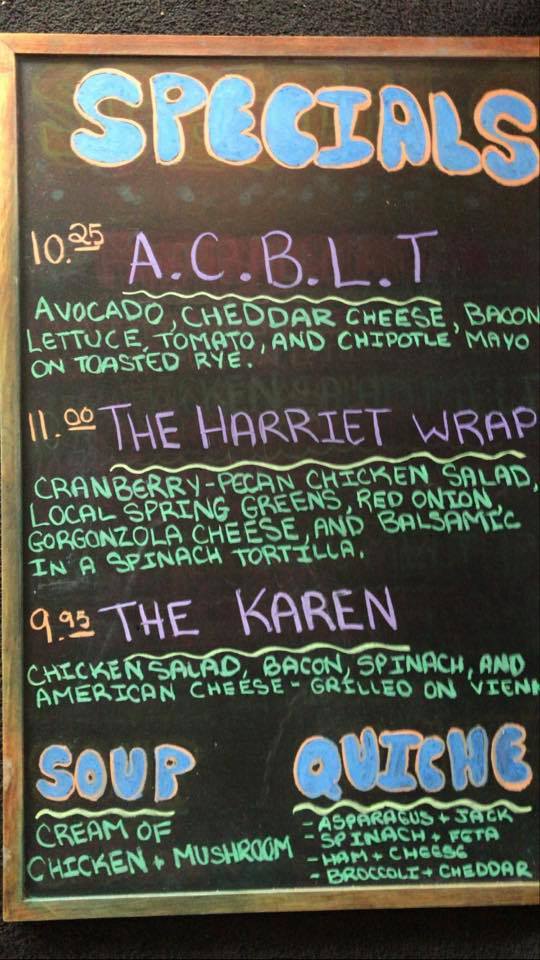 SPECIALS
10.25 A.C.B.L.T
AVOCADO, CHEDDAR CHEESE, BACON
LETTUCE, TOMATO, AND CHIPOTLE MAYO
ON TOASTED RYE.
11.00 THE HARRIET WRAP
CRANBERRY-PECAN CHICKEN SALAD,
LOCAL SPRING GREENS, RED ONION,
GORGONZOLA CHEESE, AND BALSAMIC
IN A SPINACH TORTILLA.
9.95 THE KAREN
CHICKEN SALAD, BACON, SPINACH, AND
AMERICAN CHEESE - GRILLED ON VIENN
SOUP
CREAM OF
CHICKEN + MUSHROOM
QUICHE
- ASPARAGUS + JACK
- SPINACH + FETA
- HAM + CHEESE
- BROCCOLI + CHEDDAR